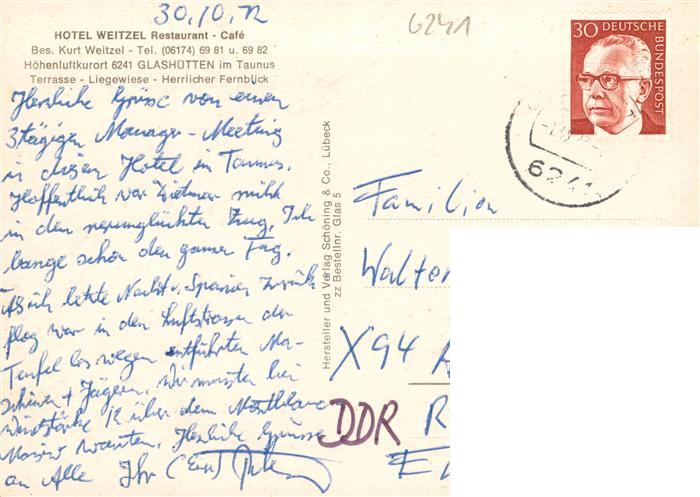 30.10.72
6241
HOTEL WEITZEL Restaurant - Café
Bes. Kurt Weitzel - Tel. (06174) 69 81 u. 69 82
Höhenluftkurort 6241 GLASHÜTTEN im Taunus
Terrasse - Liegewiese - Herrlicher Fernblick
Herzliche Grüsse von einem
3tägigen Manager-Meeting
in diesem Hotel im Taunus.
Hoffentlich war Dietmar nicht
in dem verunglückten Zug. Ich
bange schon den ganzen Tag.
Als ich letzte Nacht v. Spanien zurück
flog war in den Luftstrassen der
Teufel los wegen entführten Ma-
schinen + Jägern. Wir mussten bei
Windstärke 12 über dem Montblanc
Massiv warten. Herzliche Grüsse
an Alle Ihr
Hersteller und Verlag Schöning & Co., Lübeck
zz Bestellnr. Glas 5
30 DEUTSCHE
BUNDESPOST
6241
Familien
Walter
X94 A
DDR R